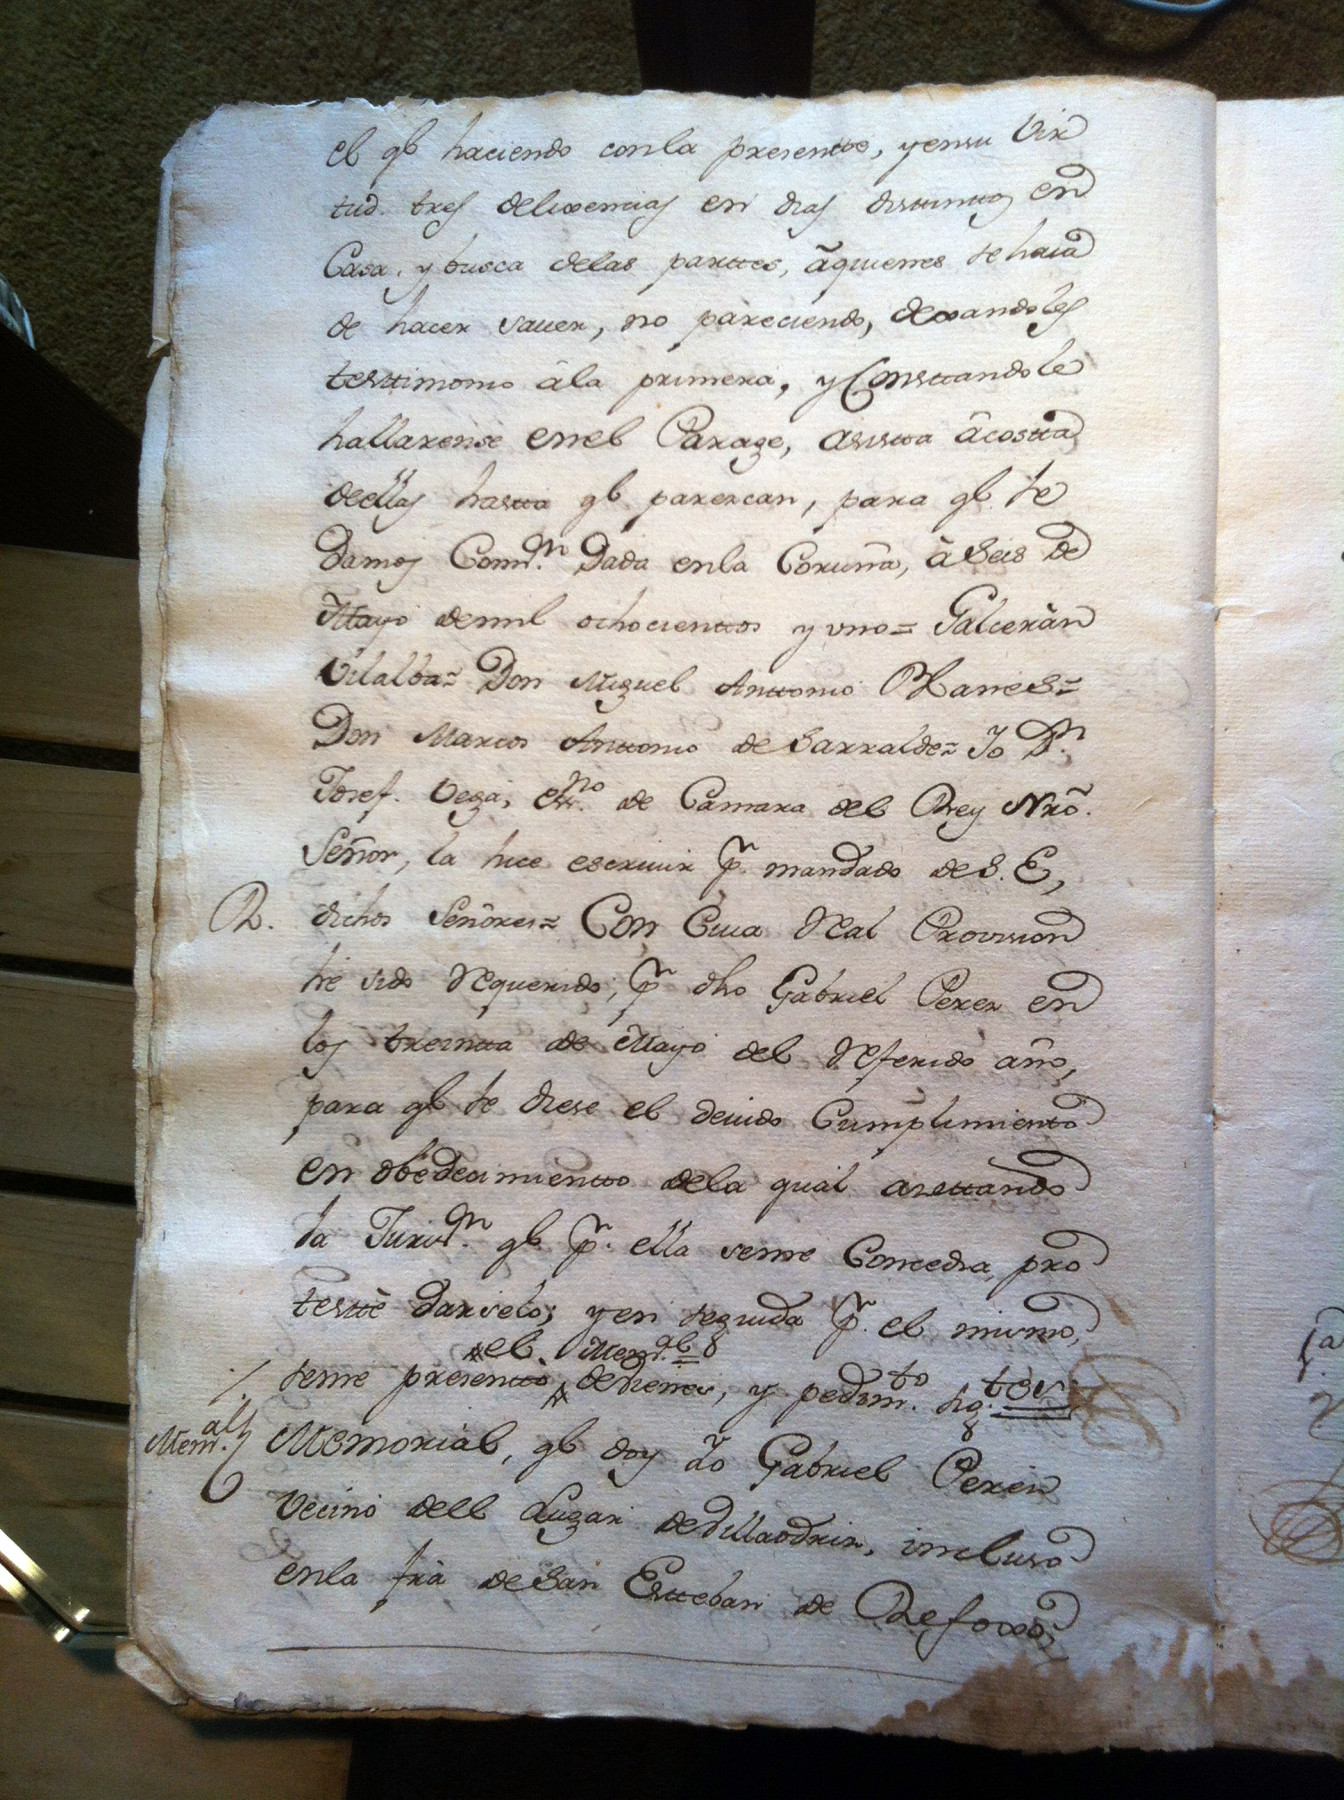 el qe haciendo conla presentte, y ensu Vir
tud. tres delixencias en dias disttinttos en
Casa, y busca delas parttes, âquienes se haia
de hacer sauer, no pareciendo, dexandoles
testtimonio âla primera, y Consttandole
hallarense enel Parage, asistta âcostta
deellas hastta qe parezcan, para qe se
Damos Comn. Dada enla Coruña, â Seis de
Mayo demil ochocienttos y uno= Galcerân
Vilalba= Don Miguel Anttonio Blanes=
Don Marcos Anttonio de Sarralde= Yo Dn.
Josef. Vega, essno. de Camara del Rey Nrô.
Señor, la hice escriuir pr. mandado de S. E,
R. dichos Señores= Con Cuia Real Provision
hè sido Requerido, pr dho Gabriel Perez en
los treintta de Mayo del Referido año,
para qe se diese el deuido Cumplimiento
en obedecimientto dela qual asettando
la Jurisdn. qe pr. ella seme Concedia, pro
testtè darselo; y en seguida pr. el mismo,
el Meml.
seme presenttò, debienes, y pedimto. sig. tes
Meml. Memorial, qe doy Yo Gabriel Perez
Vecino dell Lugar deVillaodriz, incluso
enla fra de San Estteban de Refoxos,